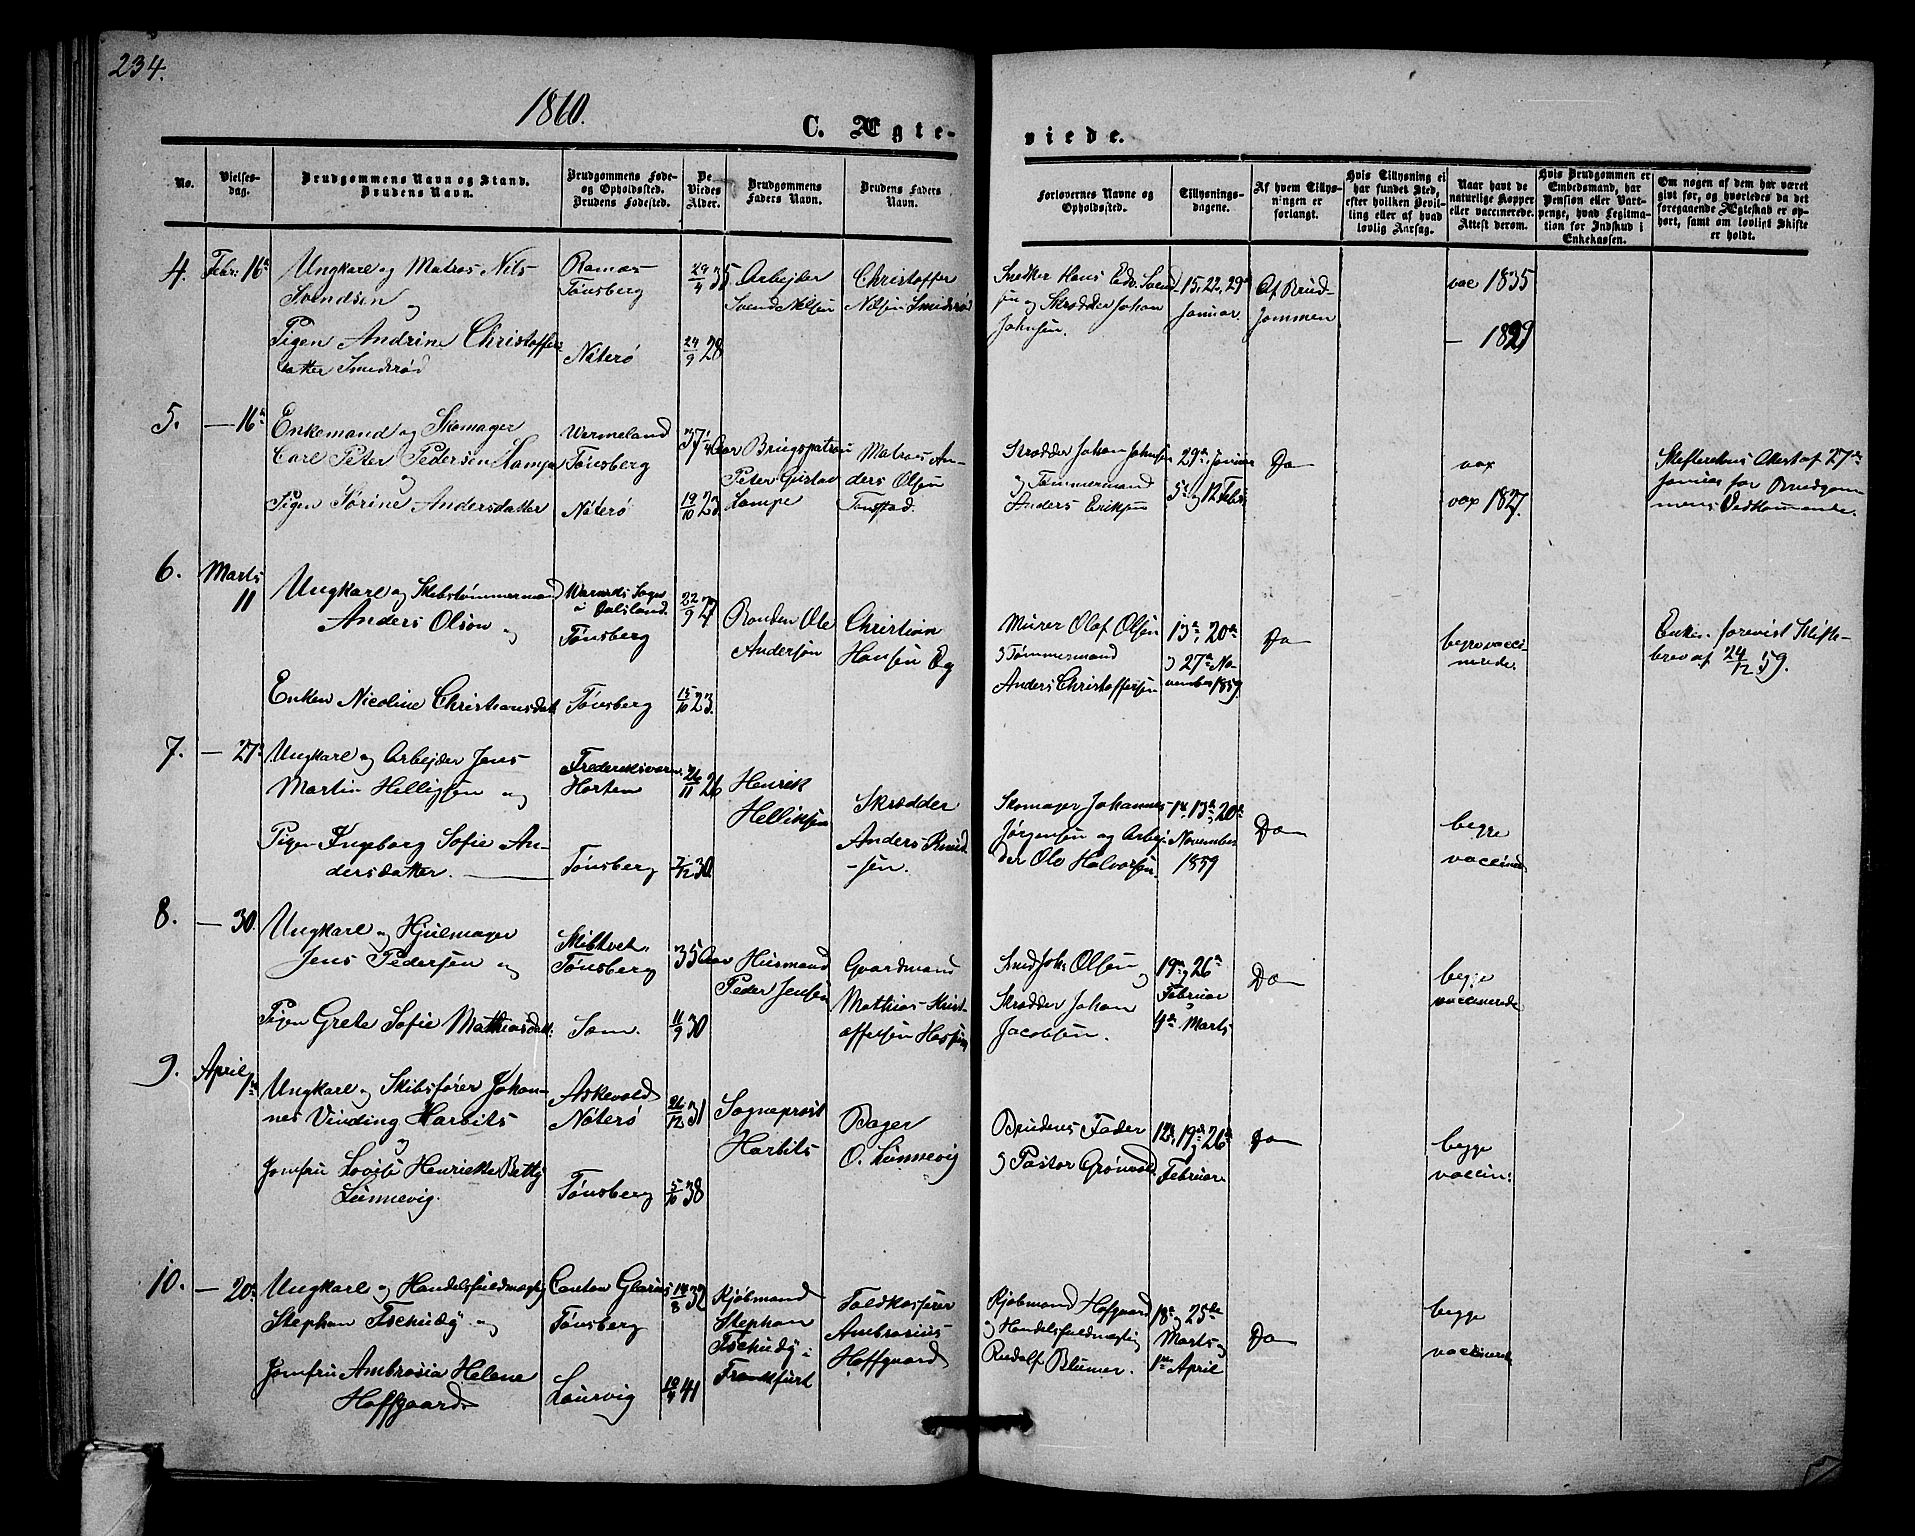 234.
1860.
C. Ægte-
viede.
No.
Vielses-
dag.
Brudgommens Navn og Stand.
Brudens Navn.
Brudgommens Føde-
og Opholdssted.
Brudens Fødested.
De
Viedes
Alder.
Brudgommens
Faders Navn.
Brudens Faders
Navn.
Forlovernes Navne og
Opholdssted.
Tillysnings-
dagene.
Af hvem Tillys-
ningen er
forlangt.
Hvis Tillysning ei
har fundet Sted,
efter hvilken Bevil-
ling eller af hvad
lovlig Aarsag.
Naar havt de
naturlige Kopper
eller vaccinerede.
Attest derom.
Hvis Brudgommen er
Embedsmand, har
Pension eller Vart-
penge, hvad Legitima-
tion for Indskud i
Enkekassen.
Om nogen af dem har været
givt før, og hvorledes da det
foregaaende Ægteskab er op-
hørt, samt om lovligt Skifte
er holdt.
4. Febr: 16de
Ungkarl og Matros Nils
Svendsen og
Pigen Andrine Christoffers
datter Smedsrød
Ramnes
Tønsberg
Nøterø
29/4 35
24/9 28
Arbejder
Svend Nilsen
Christoffer
Nilsen Smidsrød
Snedker Hans Edv. Svend
sen og Skrædder Johan
Johnsen.
15, 22, 29de
Januar
Af Brud-
gommen
vac 1835
— 1839
5. — 16de
Enkemand og Skomager
Carl Peter Pedersen Kampe
og
Pigen Sørine Andersdatter
Wermeland
Tønsberg
Nøterø
37 1/4 Aar
19/10 23
Brugspatron
Peter Gustav
Kampe
Matros An-
ders Olsen
Skrædder Johan Johnsen
og Tømmermand
Anders Eriksen
29de Januar
5te og 12 Febr.
Do
vax
vax 1837.
Skifterettens Attest af 27de
Januar for Brudgom-
mens Vedkommende.
6. Marts
11
Ungkarl og Skibstømmermand
Anders Olson og
Enken Nicoline Christiansdat
i Dalsland.
Tønsberg
Tønsberg
22/9 27
15/10 23.
Bonden Ole
Andersen
Christian
Hansen Eg
Murer Olaf Olsen
og Tømmermand
Anders Christoffersen
13de, 20de
og 27de No-
vember 1859
Do
begge vacci-
nerede.
Enken forevist Skifte-
brev af 24/12 59.
7. — 27de
Ungkarl og Arbejder Jens
Martin Helligsen og
Pigen Ingeborg Sofie An-
dersdatter.
Frederiksværn
Horten
Tønsberg
26/11 26
7/12 30
Henrik
Helliksen
Skrædder
Anders Knud
-sen.
Skomager Johannes
Jørgensen og Arbej-
der Ole Halvorsen.
13de, 20de
November
1859
Do
begge
vaccined
8. — 30.
Ungkarl og Hjulmager
Jens Pedersen og
Pigen Grete Sofie Mathiasdatt:
Skibtvet
Tønsberg
Sem.
35 Aar
11/9 30
Husmand
Peder Jensen
Gaardmand
Mathias Krist
offersen
Smed Johs Olsen og
Skrædder Johan
Jacobsen.
19de og 26de
Februar
4de Marts
Do
begge
vaccinerede
9. April
1ste
Ungkarl og Skibsfører Johan-
nes Vinding Harbits
og
Jomfru Lovise Henriette Betty
Lunnevig.
Askevold
Nøterø
Tønsberg
26/12 31
5/10 38
Sogneprest
Harbits
Bager
O. Lunnevig
Brudens Fader
og Pastor Grønvold
12te, 19de, 26de
Februar
Do
begge
vaccin:
10. — 20de
Ungkarl og Handelsfuldmægtig
Stephan Tschudy og
Jomfru Ambrosia Helene
Hoffgaard.
Canton Glarus
Tønsberg
Laurvig
32
41
Kjøbmand
Stephan
Tschudy i
Frankfurt
Toldkasserer
Ambrosius
Hoffgaard
Kjøbmand Hofgaard
og Handelsfuldmægtig
Rudolf Blumer.
18de og 25de
Marts og
1ste April
Do
begge
vaccinerede